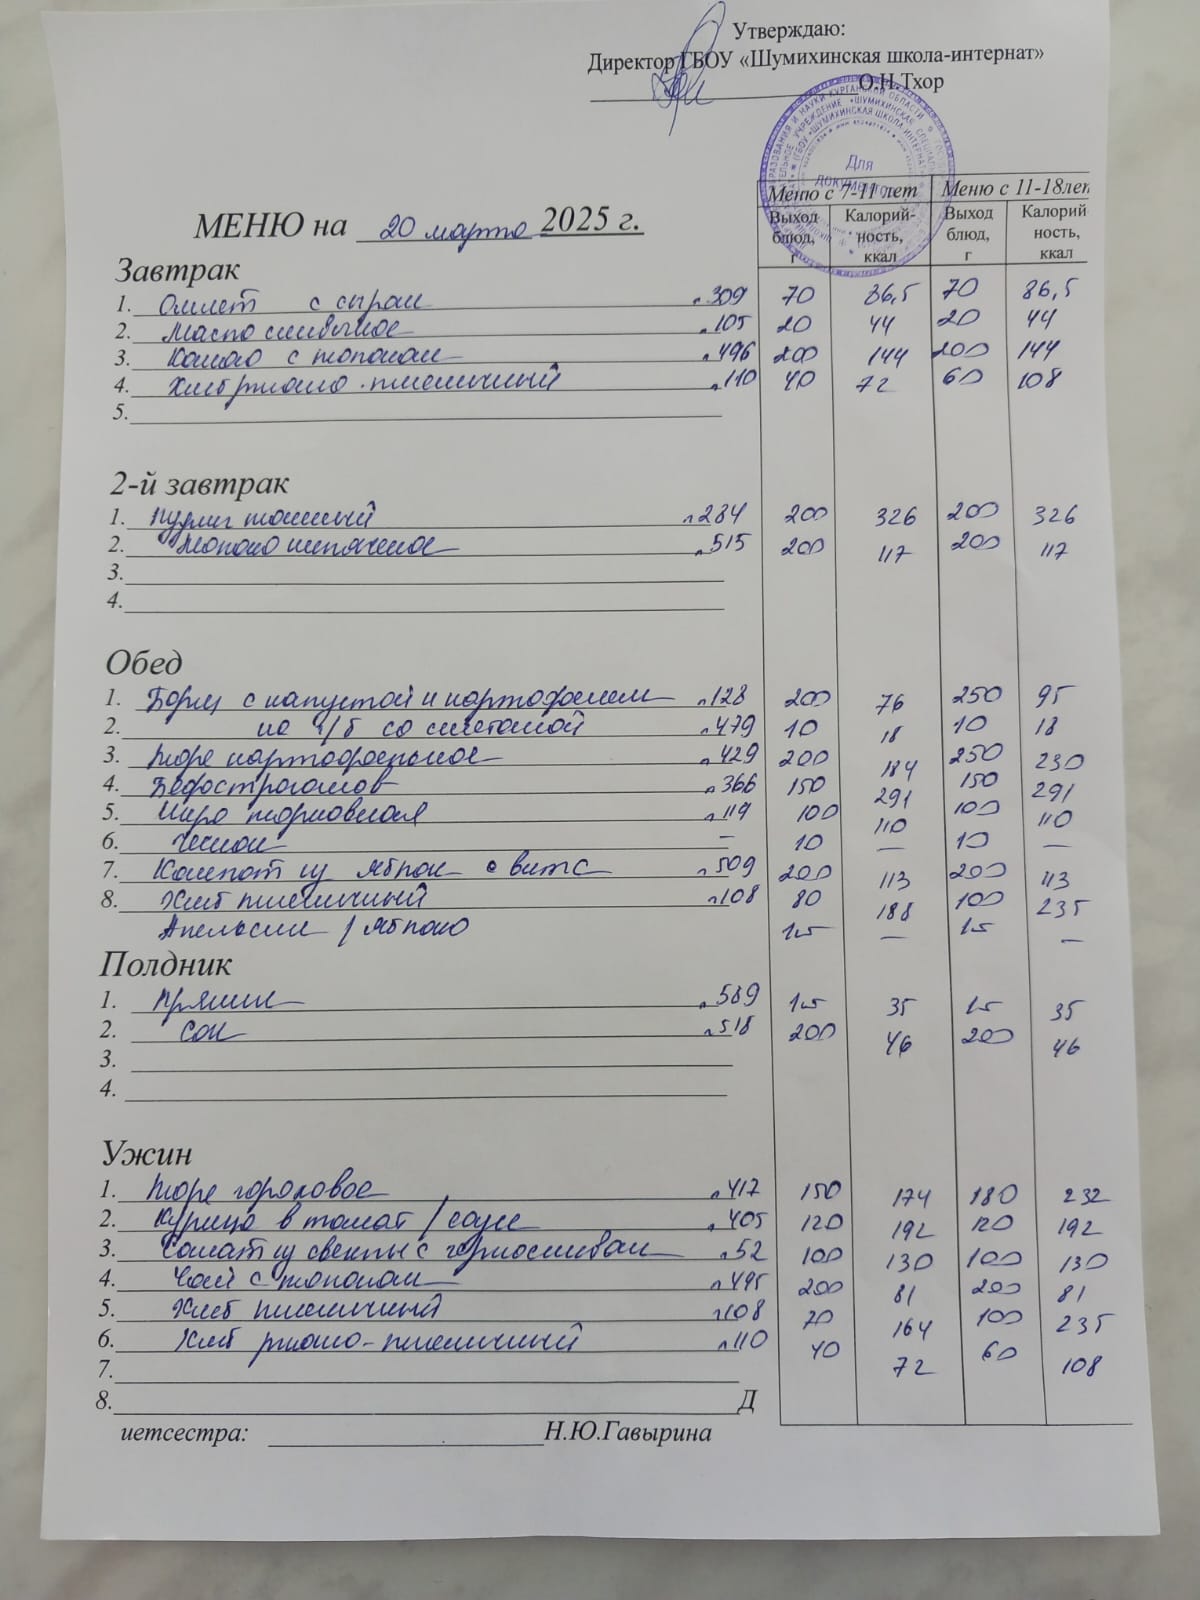 Утверждаю:
Директор ГБОУ «Шумихинская школа-интернат»
О.Н.Тхор
Для документов
Меню с 7-11 лет Меню с 11-18лет
Выход блюд, г Калорий-ность, ккал Выход блюд, г Калорий ность, ккал
МЕНЮ на 20 марта 2025 г.
Завтрак
1. Омлет с сыром л.309 70 86,5 70 86,5
2. Масло сливочное л.105 20 44 20 44
3. Какао с молоком л.496 200 144 200 144
4. Хлеб ржано-пшеничный л.110 40 72 60 108
5.
2-й завтрак
1. Пудинг манный л284 200 326 200 326
2. Молоко кипяченое л.515 200 117 200 117
3.
4.
Обед
1. Борщ с капустой и картофелем л128 200 76 250 95
2. со сметаной л479 10 18 10 18
3. Пюре картофельное л429 200 184 250 230
4. Бефстроганов л366 150 291 150 291
5. Икра морковная л119 100 110 100 110
6. Чеснок — 10 — 10 —
7. Компот из яблок с вит С л509 200 113 200 113
8. Хлеб пшеничный л108 80 188 100 235
Апельсин / яблоко 1шт — 1шт —
Полдник
1. Пряник л.589 1шт 35 1шт 35
2. Сок л518 200 46 200 46
3.
4.
Ужин
1. Пюре гороховое л.417 150 174 180 232
2. Курица в томат/соусе л.405 120 192 120 192
3. Салат из свеклы с черносливом л.52 100 130 100 130
4. Чай с молоком л495 200 81 200 81
5. Хлеб пшеничный л108 70 164 100 235
6. Хлеб ржано-пшеничный л110 40 72 60 108
7.
8. Д
иетсестра: Н.Ю.Гавырина